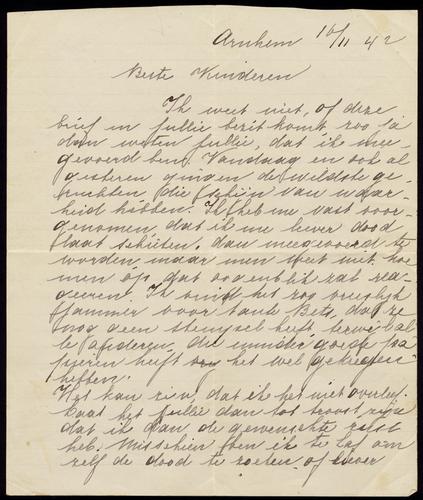 Arnhem 16/11 42
Beste Kinderen
Ik weet niet, of deze
brief in jullie bezit komt, zoo ja
dan weten jullie, dat ik mee-
gevoerd ben. Vandaag en ook al
gisteren gingen de wildste ge
ruchten, die schijn van waar-
heid hebben. Ik heb me vast voor-
genomen dat ik me liever dood
laat schieten, dan meegevoerd te
worden maar men weet niet hoe
men op dat oogenblik zal rea-
geeren. Ik vind het zoo vreeslijk
jammer voor tante Bets, dat ze
nog geen stempel heeft, terwijl al
de anderen, die minder goede pa
pieren heeft het wel gekregen
hebben.
Het kan zijn, dat ik het niet overleef.
Laat het jullie dan tot troost zijn
dat ik dan de gewenschte rust
heb. Misschien ben ik te laf om
zelf de dood te zoeken, of liever